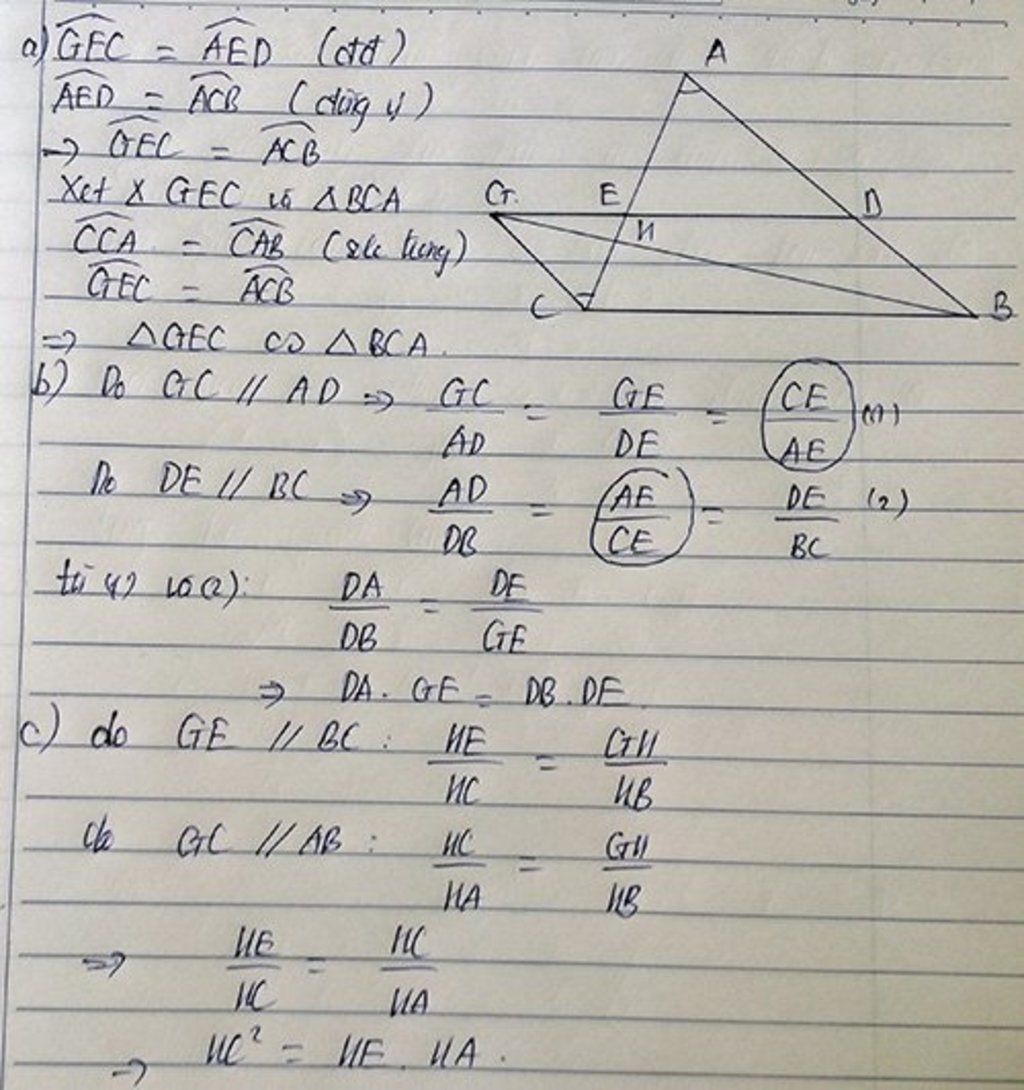 a) GEC = AED (đđ)
AED = ACB (đồng vị)
=> GEC = ACB
Xét X GEC và △BCA
CCA = CAB (sle trong)
GEC = ACB
=> △GEC ∽ △BCA.
A
G E D
H
C B
b) Do GC // AD => GC/AD = GE/DE = CE/AE (1)
Do DE // BC => AD/DB = AE/CE = DE/BC (2)
từ (1) và (2): DA/DB = DE/GE
=> DA. GE = DB.DE
c) do GE // BC: HE/HC = GH/HB
do GC // AB: HC/HA = GH/HB
=> HE/HC = HC/HA
=> HC² = HE. HA.